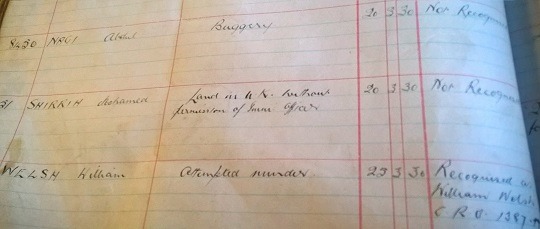 8430 NRGI Abdul Buggery 20 3 30 Not Recogn
31 SHIRKIH Mohamed Land in U.K. without 20 3 30 Not Recogn
permission of Imm Officer
WELSH William Attempted murder. 23 3 30 Recognised as
William Welsh
C.R.O. 1387